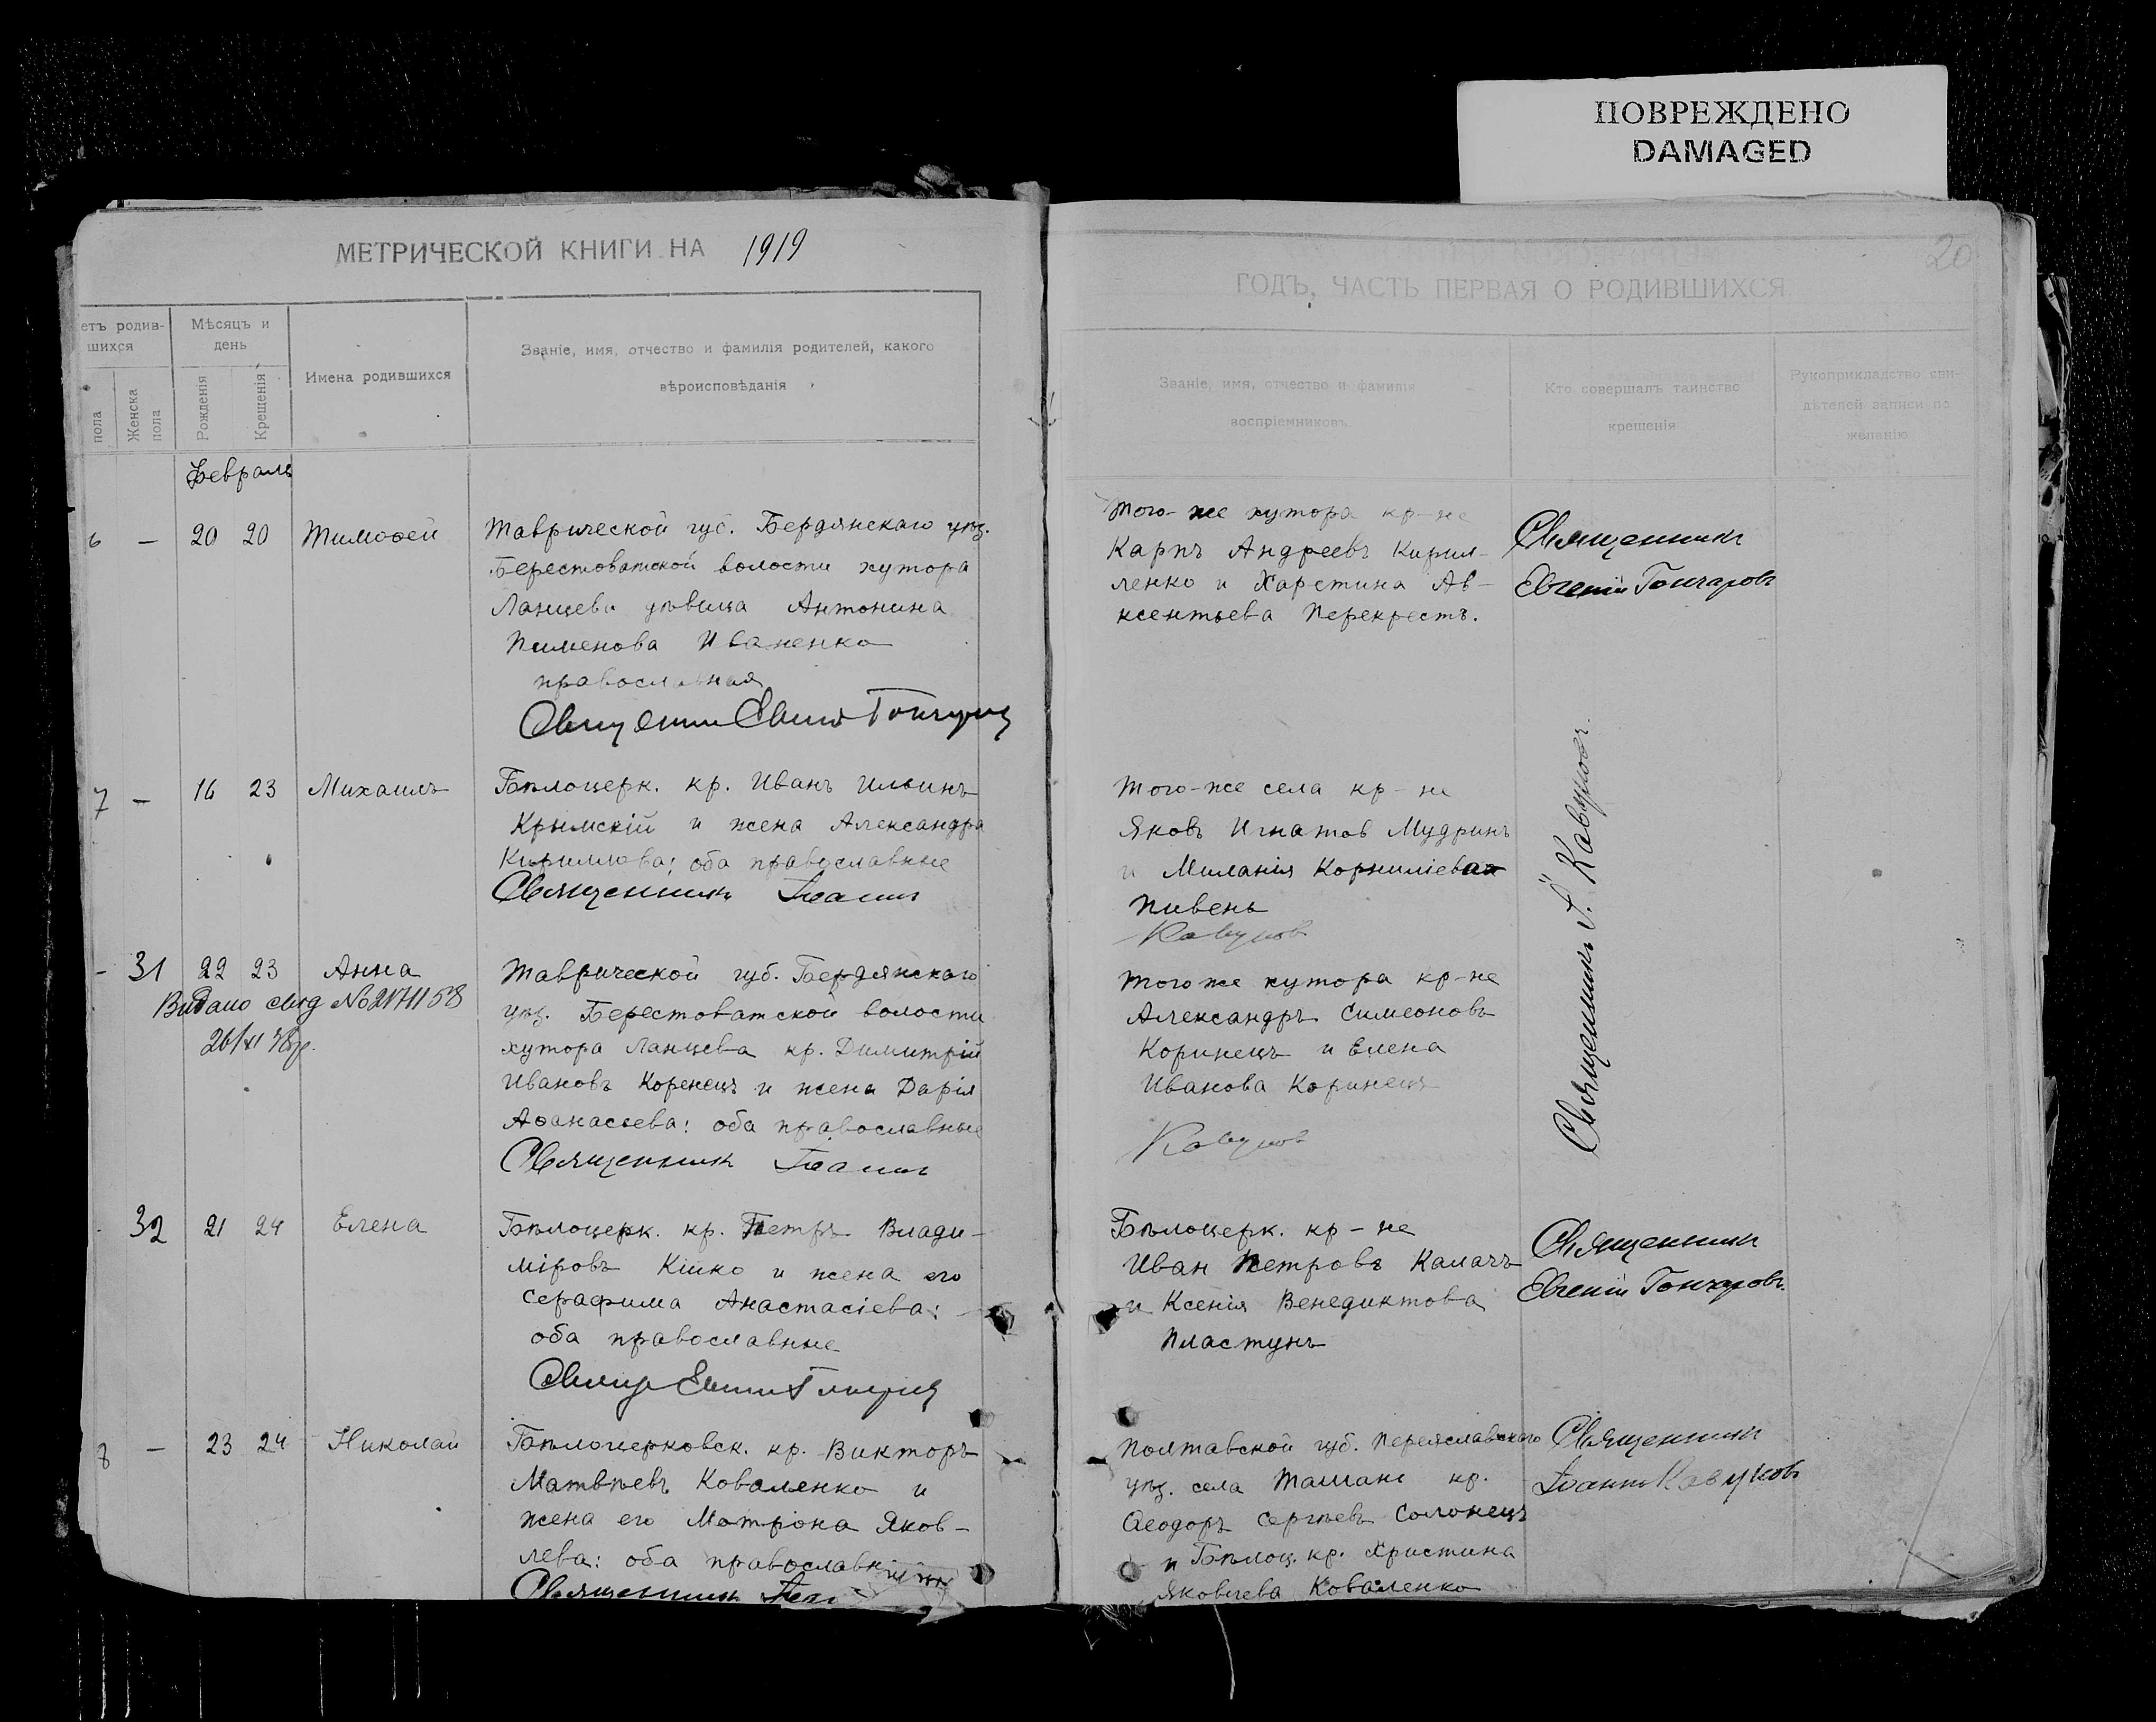 ПОВРЕЖДЕНО
DAMAGED
МЕТРИЧЕСКОЙ КНИГИ НА 1919
етъ родив-
шихся
пола
Женска
пола
Мѣсяцъ и
день
Рожденія
Крещенія
Имена родившихся
Званіе, имя, отчество и фамилія родителей, какого
вѣроисповѣданія
Февраль
6 — 20 20 Тимоѳей
Таврической губ. Бердянскаго уѣз.
Берестоватской волости хутора
Ланцева дѣвица Антонина
Пименова Иваненко
православная
7 — 16 23 Михаилъ
Бѣлоцерк. кр. Иванъ Ильинъ
Крымскій и жена Александра
Кириллова; оба православные
Священникъ Іоаннъ
- 31 22 23 Анна
Видано свид №2171158
26/XI 38р.
Таврической губ. Бердянскаго
уѣз. Берестоватской волости
хутора Ланцева кр. Димитрій
Ивановъ Коренецъ и жена Дарія
Аѳанасьева: оба православные
Священникъ Іоаннъ
32 21 24 Елена
Бѣлоцерк. кр. Петръ Влади-
міровъ Кійко и жена его
Серафима Анастасіева:
оба православные
8 — 23 24 Николай
Бѣлоцерковск. кр. Викторъ
Матвѣевъ Коваленко и
жена его Матрона Яков-
лева: оба православн
Священникъ
20
ГОДЪ, ЧАСТЬ ПЕРВАЯ О РОДИВШИХСЯ
Званіе, имя, отчество и фамилія
воспріемниковъ.
Кто совершалъ таинство
крещенія
Рукоприкладство сви-
дѣтелей записи по
желанію
Того-же хутора кр-не
Карпъ Андреевъ Кирил-
ленко и Харстина Ав-
ксентьева Перекрестъ.
Священникъ
Евгеній Гончаровъ
Того-же села кр-не
Яковъ Игнатов Мудринъ
и Миланія Корниліева
Пивень
Кавуновъ
Тогоже хутора кр-не
Александръ Симеоновъ
Коринецъ и Елена
Иванова Коринецъ
Кавуновъ
Священникъ І. Кавуновъ.
Бѣлоцерк. кр-не
Иван Петровъ Калачъ
и Ксенія Венедиктова
Пластунъ
Священникъ
Евгеній Гончаровъ.
Полтавской губ. Переяславскаго
уѣз. села Ташани кр.
Ѳеодоръ Сергѣевъ Солонецъ
и Бѣлоц. кр. Христина
Яковлева Коваленко
Священникъ
Іоаннъ Кавуновъ